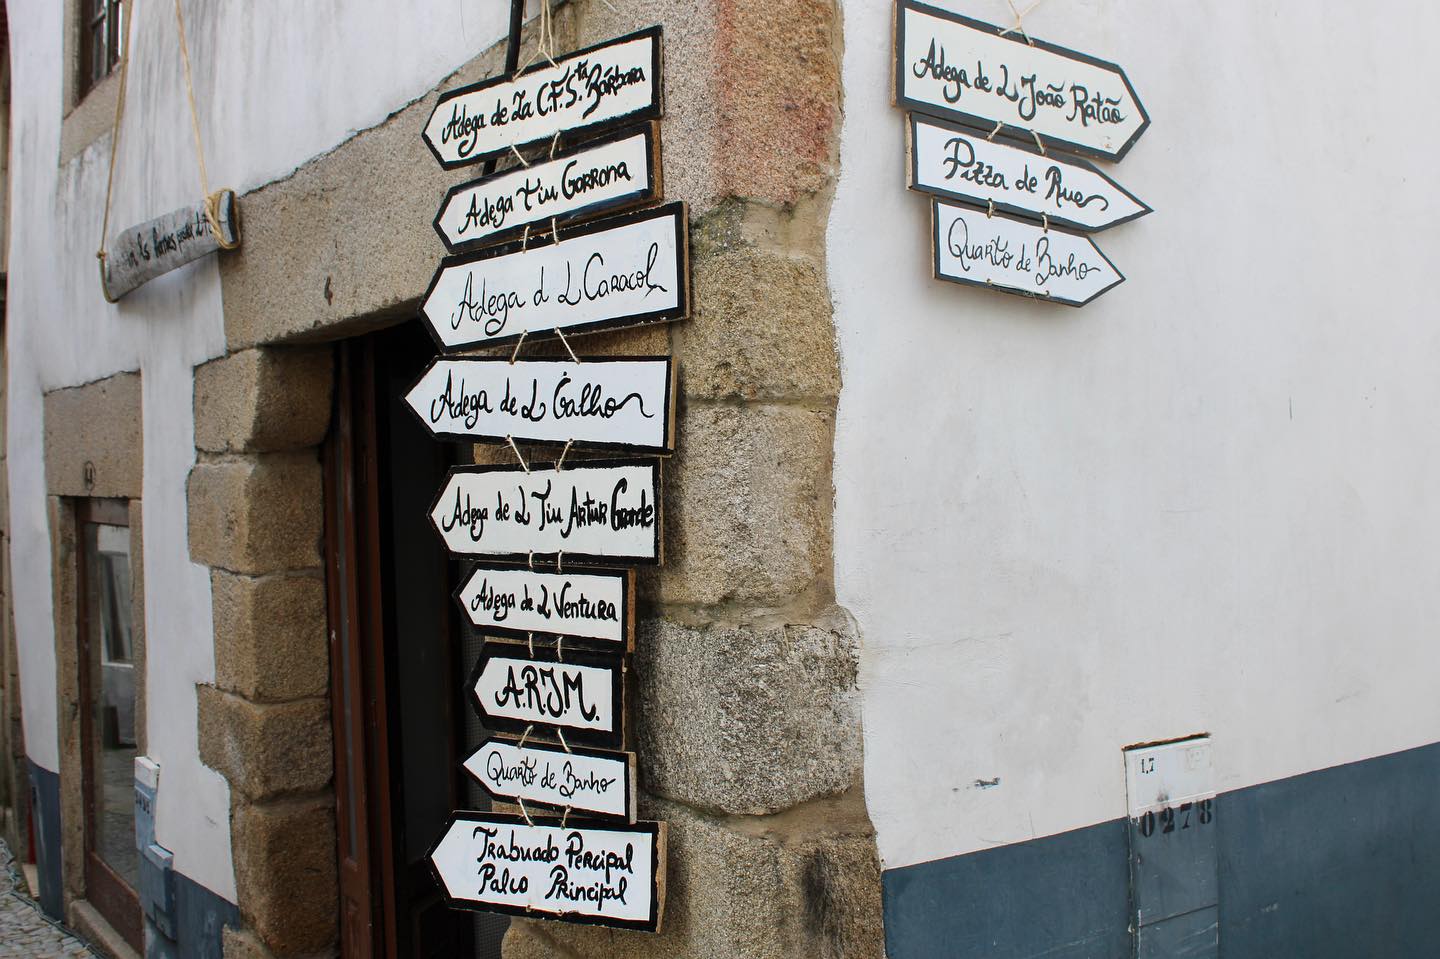 Adega de La C.F. Sta. Bárbara
Adega tiu Gorrona
Adega d L Caracol
Adega de L Galho
Adega de L Tiu Artur Grande
Adega de L Ventura
A.R.J.M.
Quarto de Banho
Trabuado Percipal
Palco Principal
Adega de L João Ratão
Pizza de Rue
Quarto de Banho
1,7
0278